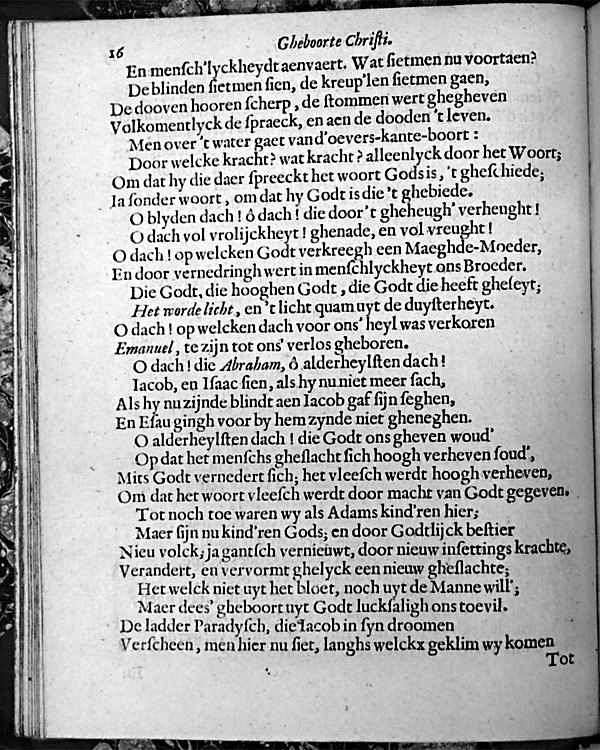 16
Gheboorte Christi.
En mensch'lyckheydt aenvaert. Wat sietmen nu voortaen?
De blinden sietmen sien, de kreup'len sietmen gaen,
De dooven hooren scherp, de stommen wert ghegheven
Volkomentlyck de spraeck, en aen de dooden 't leven.
Men over 't water gaet van d'oevers-kante-boort:
Door welcke kracht? wat kracht? alleenlyck door het Woort;
Om dat hy die daer spreeckt het woort Gods is, 't gheschiede;
Ia sonder woort, om dat hy Godt is die 't ghebiede.
O blyden dach! ô dach! die door 't gheheugh' verheught!
O dach vol vrolijckheyt! ghenade, en vol vreught!
O dach! op welcken Godt verkreegh een Maeghde-Moeder,
En door vernedringh wert in menschlyckheyt ons Broeder.
Die Godt, die hooghen Godt, die Godt die heeft gheseyt;
Het worde licht, en 't licht quam uyt de duysterheyt.
O dach! op welcken dach voor ons' heyl was verkoren
Emanuel, te zijn tot ons' verlos gheboren.
O dach! die Abraham, ô alderheylsten dach!
Iacob, en Isaac sien, als hy nu niet meer sach,
Als hy nu zijnde blindt aen Iacob gaf sijn seghen,
En Esau gingh voor by hem zynde niet gheneghen.
O alderheylsten dach! die Godt ons gheven woud'
Op dat het menschs gheslacht sich hoogh verheven soud',
Mits Godt vernedert sich; het vleesch werdt hoogh verheven,
Om dat het woort vleesch werdt door macht van Godt gegeven.
Tot noch toe waren wy als Adams kind'ren hier;
Maer sijn nu kind'ren Gods; en door Godtlijck bestier
Nieu volck; ja gantsch vernieuwt, door nieuw insettings krachte,
Verandert, en vervormt ghelyck een nieuw gheslachte;
Het welck niet uyt het bloet, noch uyt de Manne will';
Maer dees' gheboort uyt Godt lucksaligh ons toevil.
De ladder Paradysch, die Iacob in syn droomen
Verscheen, men hier nu siet, langhs welckx geklim wy komen
Tot